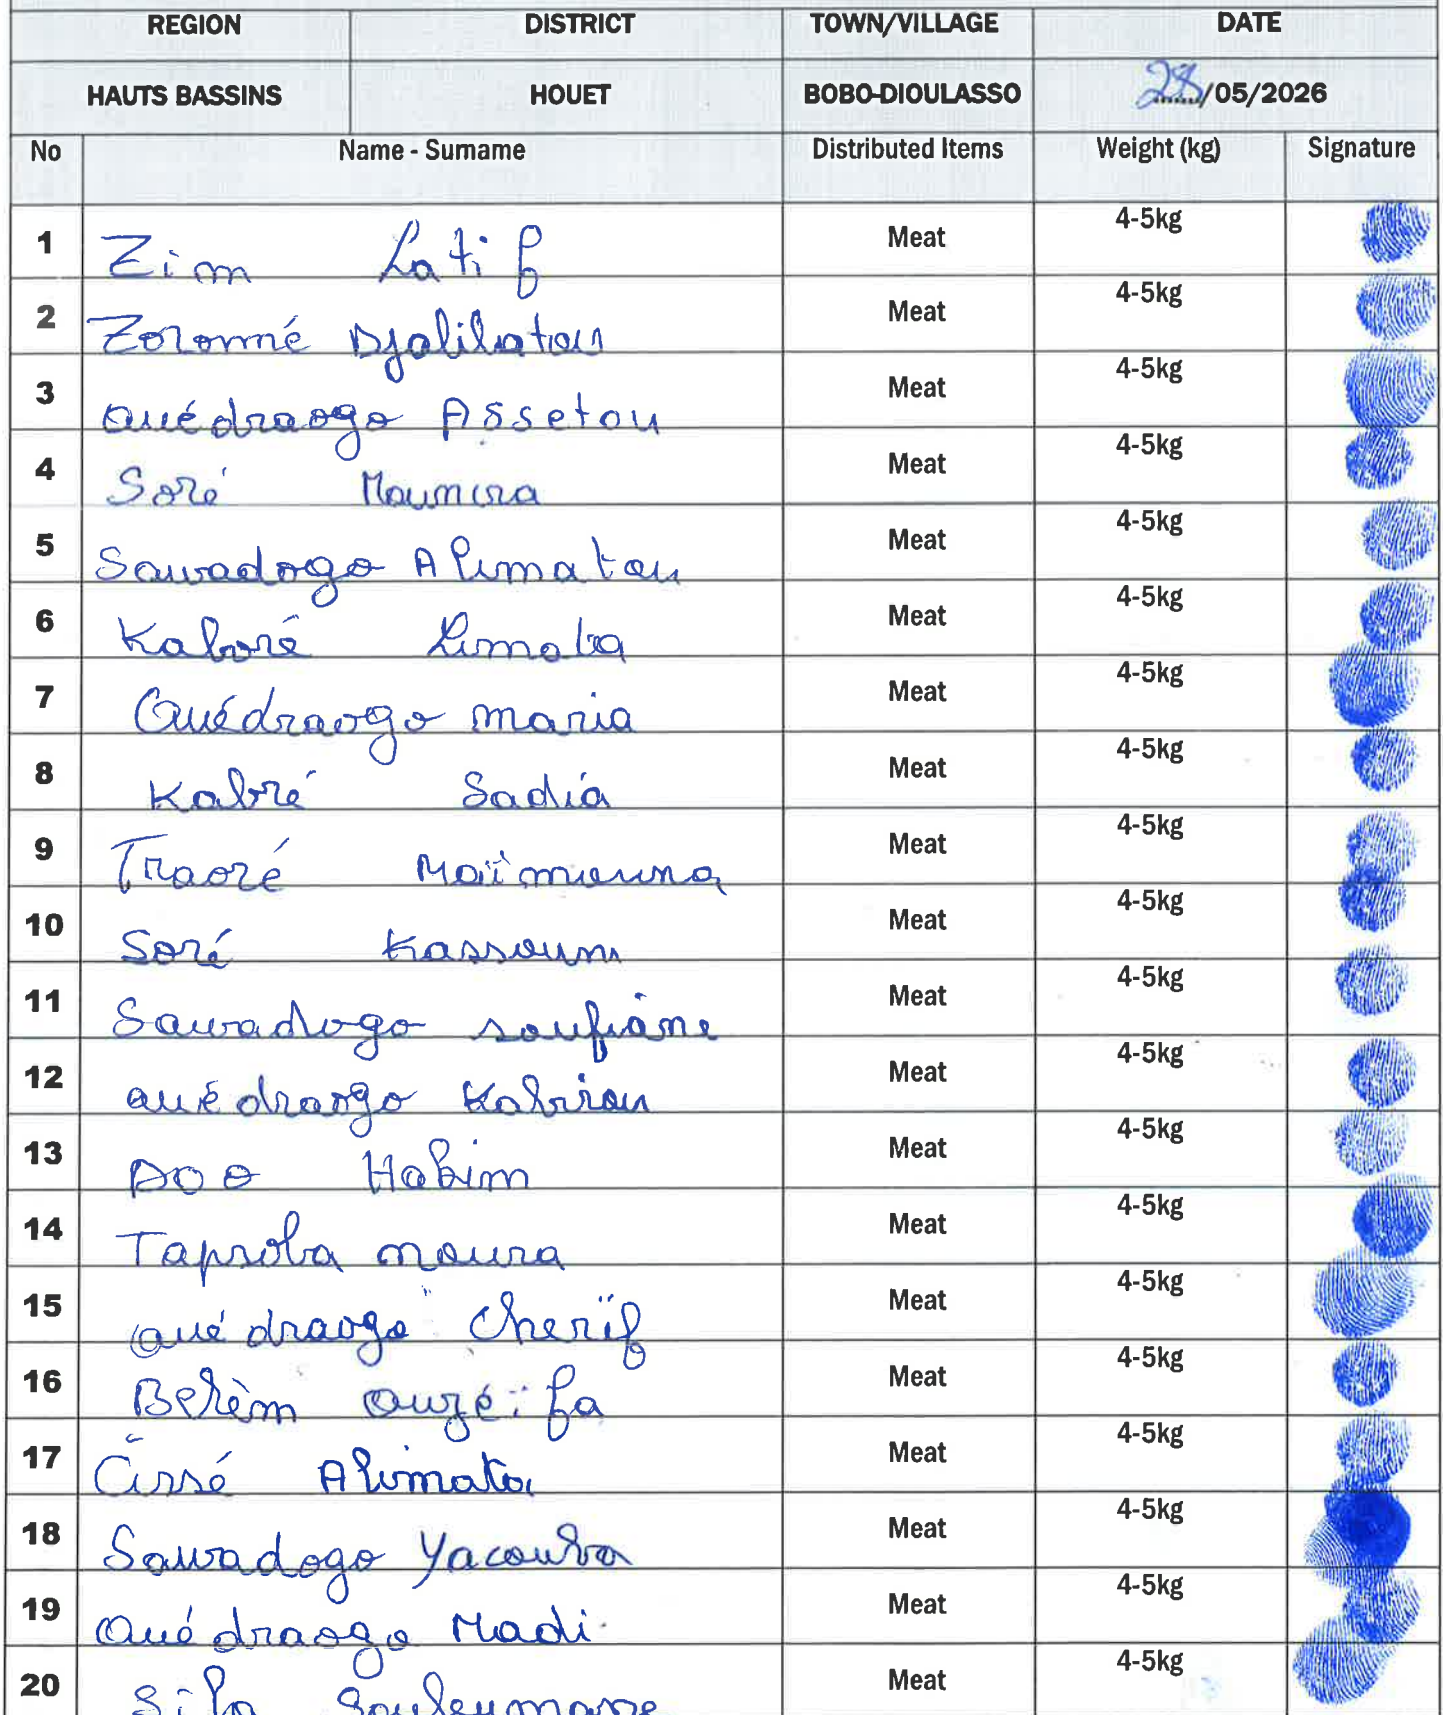 REGION DISTRICT TOWN/VILLAGE DATE
HAUTS BASSINS HOUET BOBO-DIOULASSO 28/05/2026
No Name - Surname Distributed Items Weight (kg) Signature
1 Zim Latif Meat 4-5kg
2 Zoromé Djalilatou Meat 4-5kg
3 Ouédraogo Assetou Meat 4-5kg
4 Soré Mounira Meat 4-5kg
5 Sawadogo Alimatou Meat 4-5kg
6 Kaboré Limata Meat 4-5kg
7 Ouédraogo maria Meat 4-5kg
8 Kabré Sadia Meat 4-5kg
9 Traoré Maïmouna Meat 4-5kg
10 Soré Kassoum Meat 4-5kg
11 Sawadogo soufiane Meat 4-5kg
12 ouédraogo Kabirou Meat 4-5kg
13 Hakim Meat 4-5kg
14 Tapsoba moura Meat 4-5kg
15 ouédraogo Cherïf Meat 4-5kg
16 Belèm ouzéïfa Meat 4-5kg
17 Cissé Alimata Meat 4-5kg
18 Sawadogo Yacouba Meat 4-5kg
19 Ouédraogo Madi Meat 4-5kg
20 Souleymane Meat 4-5kg